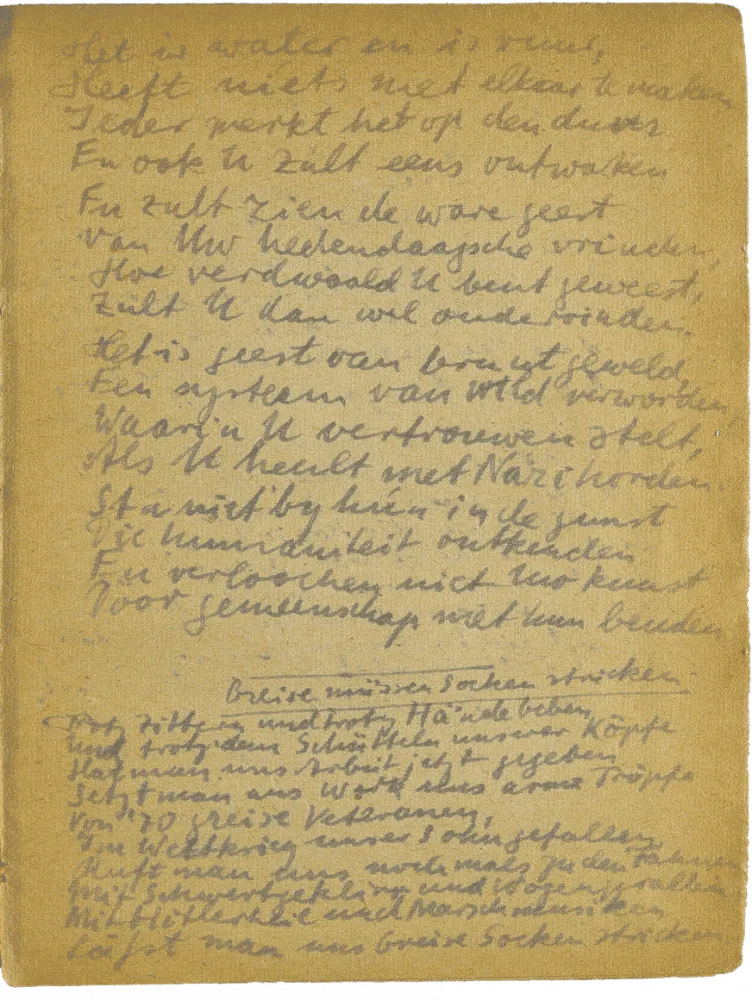 Het is water en is vuur,
Heeft niets met elkaar te maken
Ieder merkt het op den duur
En ook U zult eens ontwaken
En zult zien de ware geest
van Uw hedendaagsche vrinden,
Hoe verdwaald U bent geweest,
Zult U dan wel ondervinden.
Het is geest van bruut geweld,
Een systeem van wild verworden,
Waarin U vertrouwen stelt,
Als U heult met Nazihorden.
Sta niet by hun in de gunst
Die humaniteit ontkenden
En verloochen niet Uw kunst
Door gemeenschap met hun benden
Greise müssen Socken stricken
Trotz Zittern und trotz Händebeben
Und trotz dem Schütteln unsrer Köpfe
Hat man uns Arbeit jetzt gegeben
Setzt man ans Werk uns arme Tröpfe
Von '70 greise Veteranen,
Im Weltkrieg unser Sohn gefallen,
Ruft man uns nochmals zu den Fahnen
Mit Schwertgeklirr und Wogenprallen
Mit Hitlerheil und Marschmusiken
Läfst man uns Greise Socken stricken